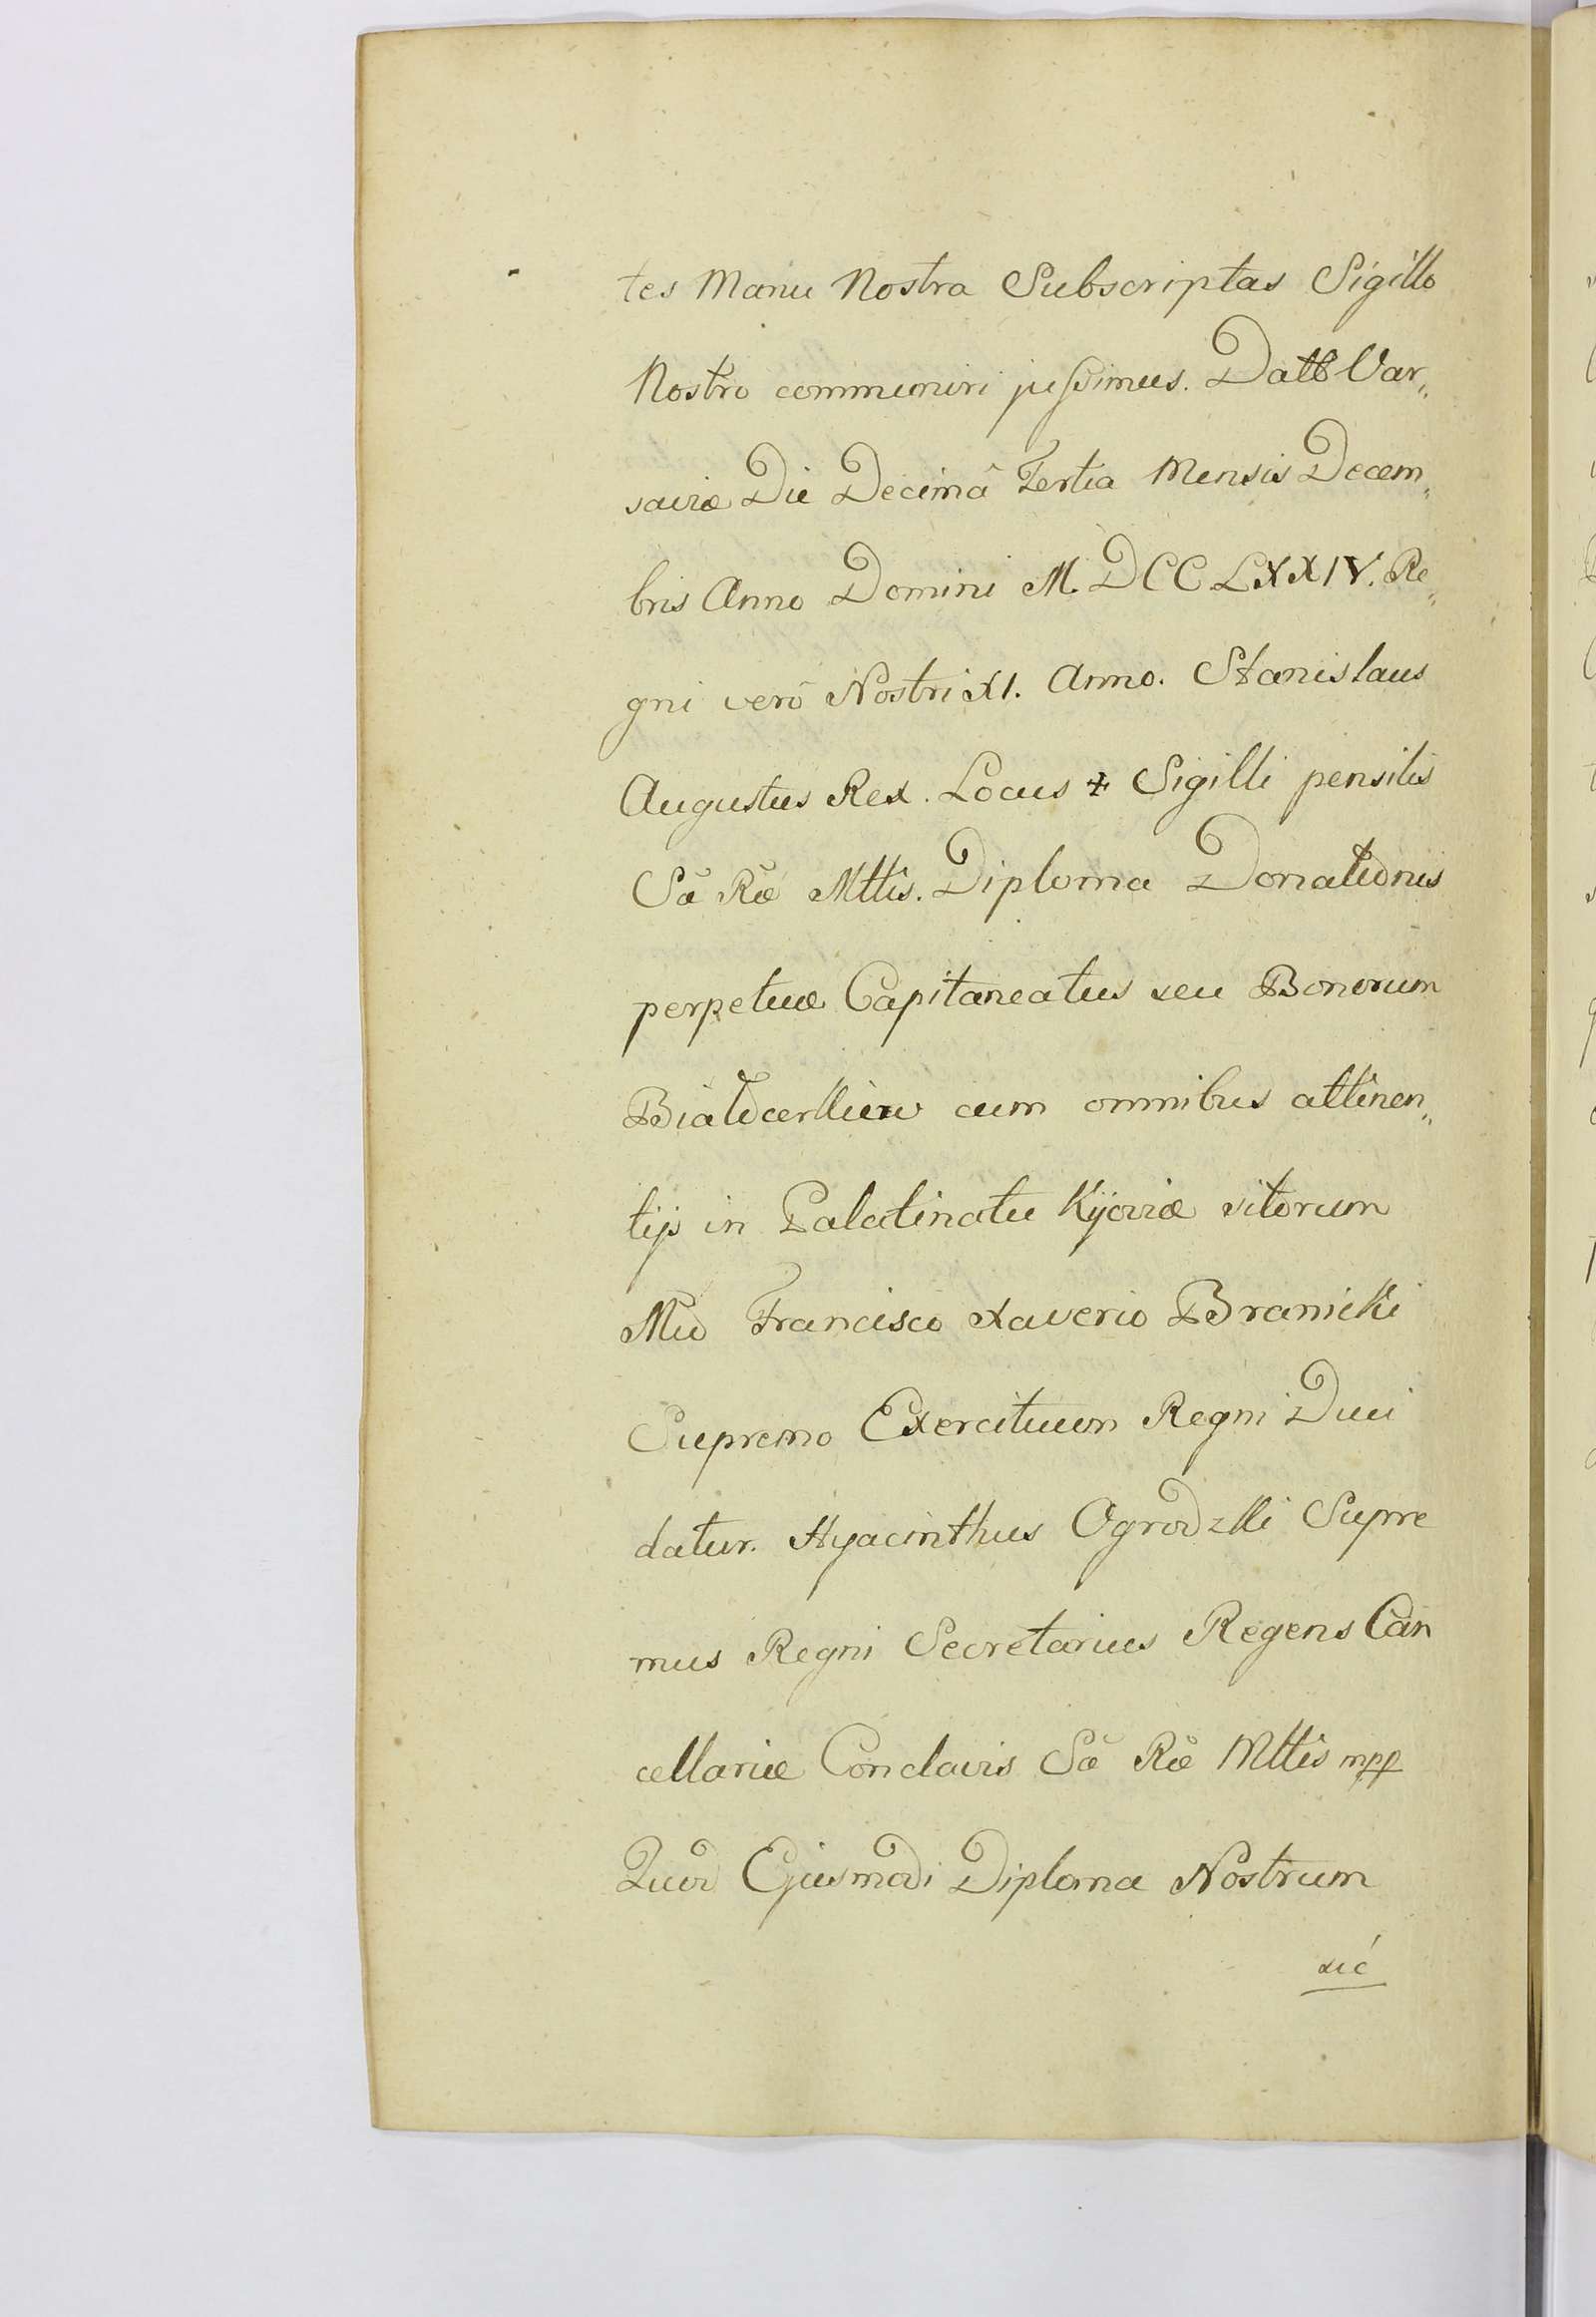 tes Manu Nostra Subscriptas Sigillo
Nostro communiri jussimus. Datt Var„
saviæ Die Decimâ Tertia Mensis Decem„
bris Anno Domini M. DCCLXXIV. Re„
gni verò Nostri XI. Anno. Stanislaus
Augustus Rex. Locus + Sigilli pensilis
Sæ Ræ Mttis. Diploma Donationis
perpetuæ Capitaneatus seu Bonorum
Białocerkiew cum omnibus attinen„
tijs in Palatinatu Kijoviæ sitorum
Mco Francisco Xaverio Branicki
Supremo Exercituum Regni Duci
datur. Hyacinthus Ogrodzki Supre
mus Regni Secretarius Regens Can
cellariæ Conclavis Sæ Ræ Mttis mpp
Quod Ejusmodi Diploma Nostrum
sic